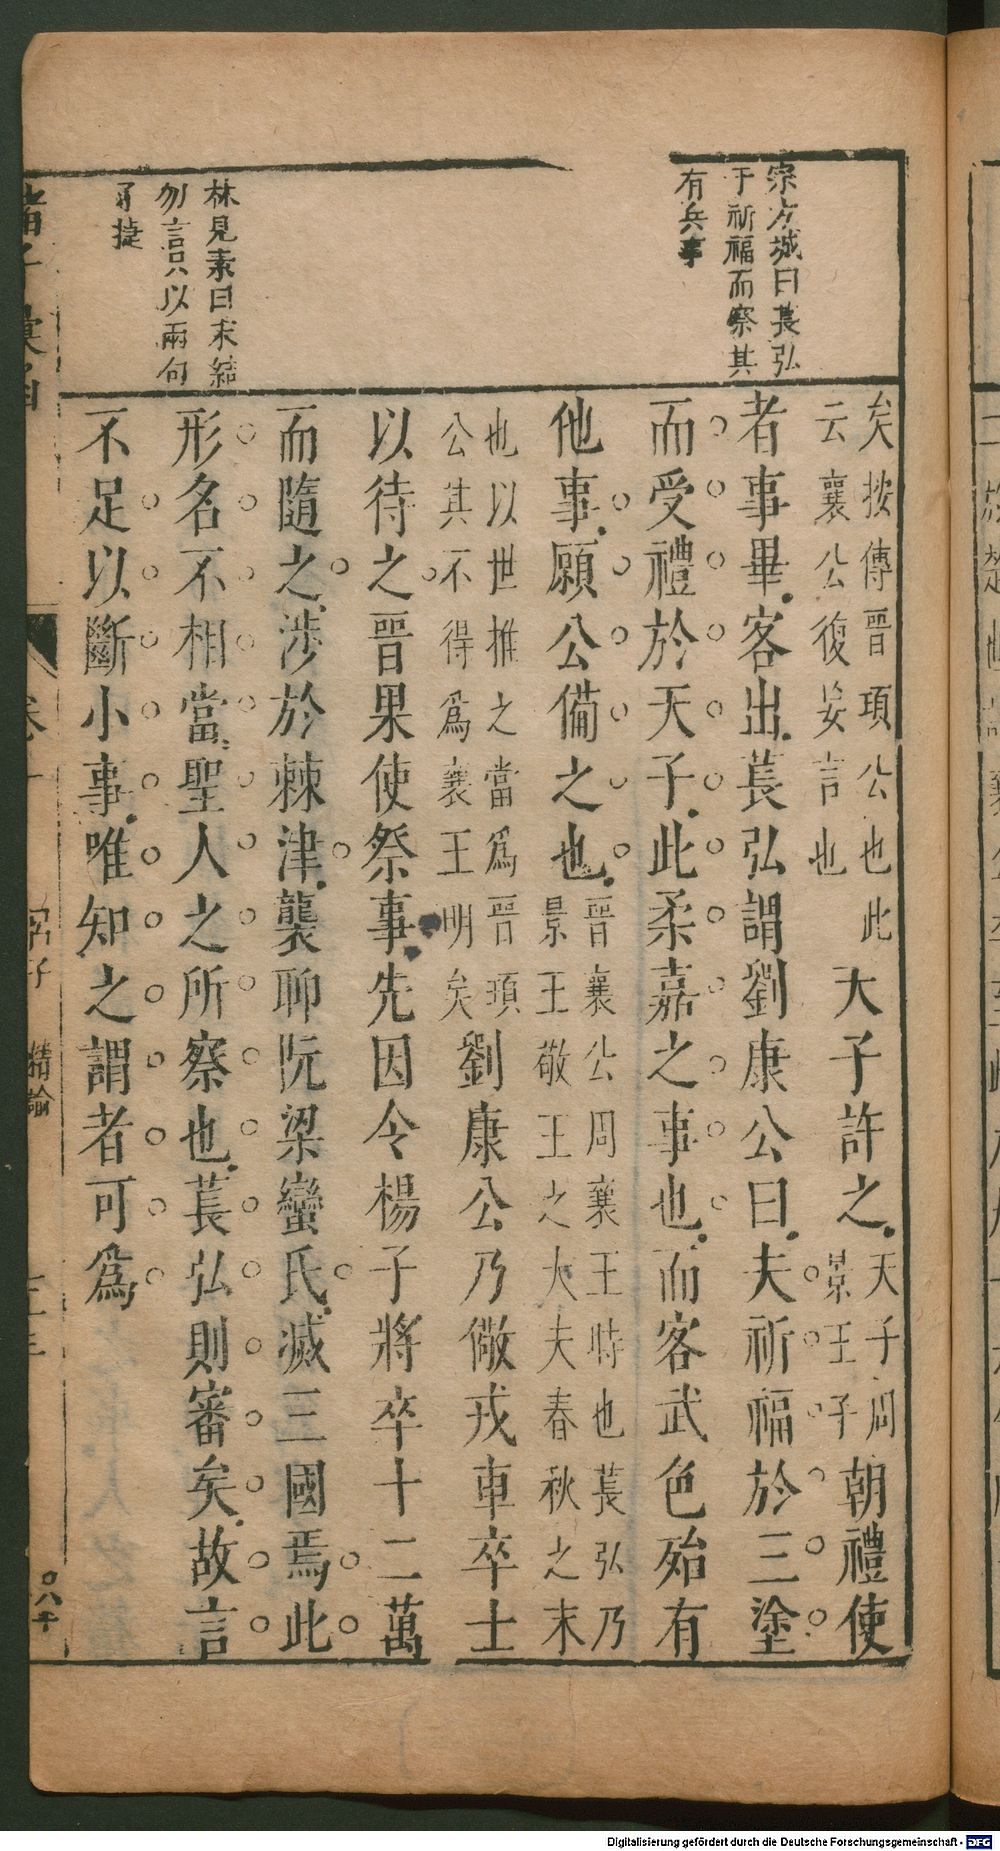 宗方城曰萇弘
于祈福而察其
有兵事
林見素曰末結
勿言只以兩句
捷
矣按傳晉頃公也此
云襄公復妄言也
天子許之天子周
景王子
朝禮使
者事畢客出萇弘謂劉康公曰夫祈福於三塗
而受禮於天子此柔嘉之事也而客武色殆有
他事願公備之也晉襄公周襄王時也萇弘乃
景王敬王之大夫春秋之末
也以世推之當爲晉頃
公其不得爲襄王明矣
劉康公乃儆戎車卒士
以待之晉果使祭事先因令楊子將卒十二萬
而隨之涉於棘津襲聊阮梁蠻氏滅三國焉此
形名不相當聖人之所察也萇弘則審矣故言
不足以斷小事唯知之謂者可爲
諸子彙函
精諭
Digitalisierung gefördert durch die Deutsche Forschungsgemeinschaft - DFG